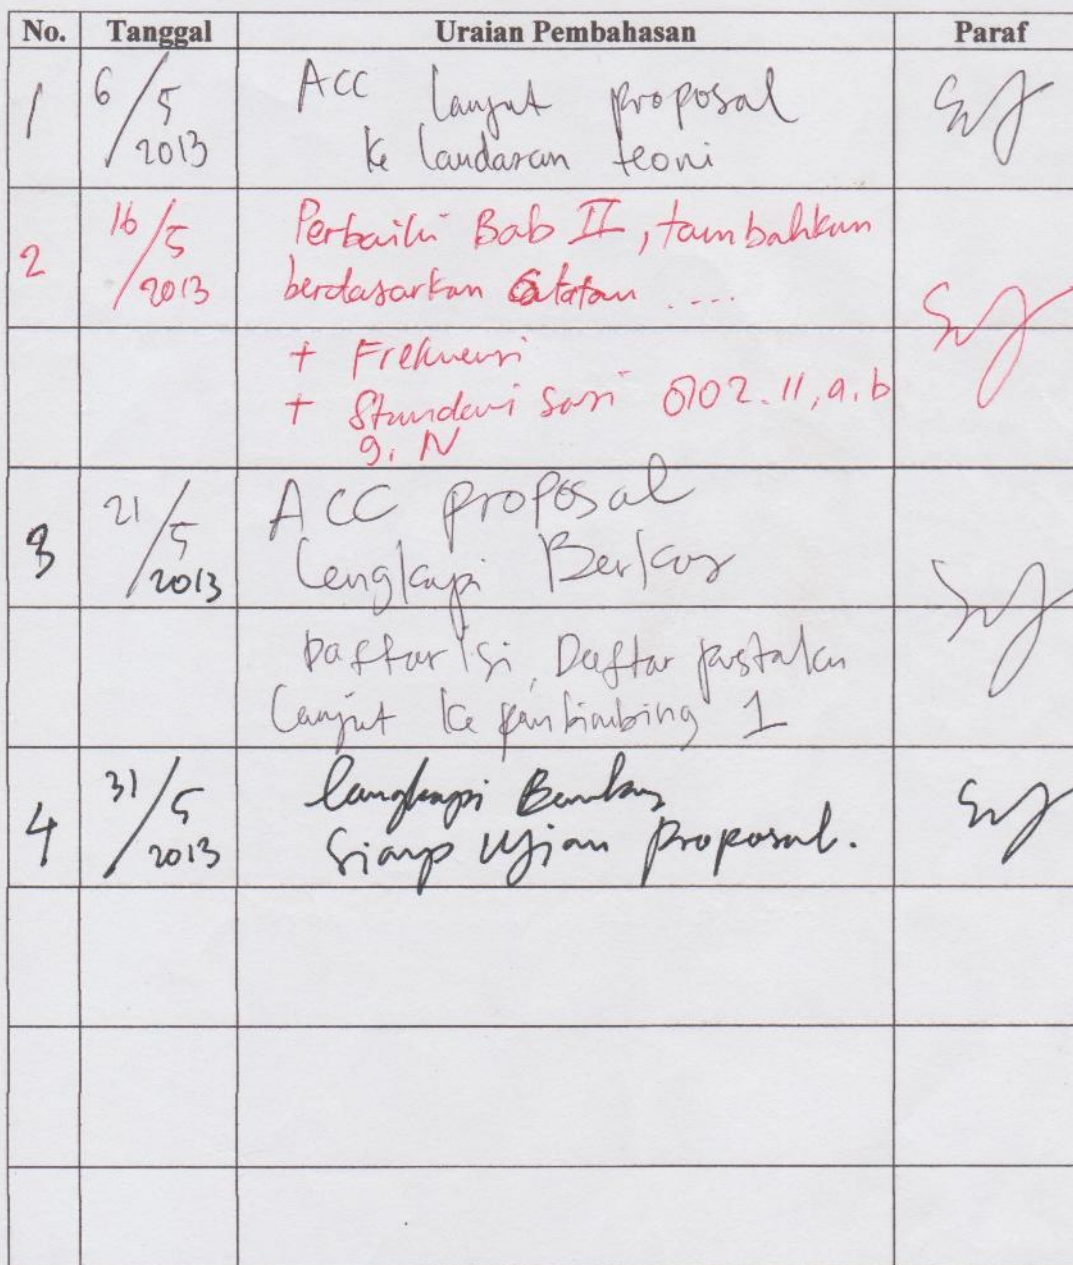 No. Tanggal Uraian Pembahasan Paraf
1 6/5 2013 ACC lanjut proposal
ke landasan teori
2 16/5 2013 Perbaiki Bab II, tambahkan
berdasarkan catatan ....
+ Frekuensi
+ Standarisasi 802.11, a. b
g. N
3 21/5 2013 ACC proposal
lengkapi Berkas
Daftar isi, Daftar pustaka
lanjut ke pembimbing 1
4 31/5 2013 lengkapi Berkas
siap Ujian proposal.